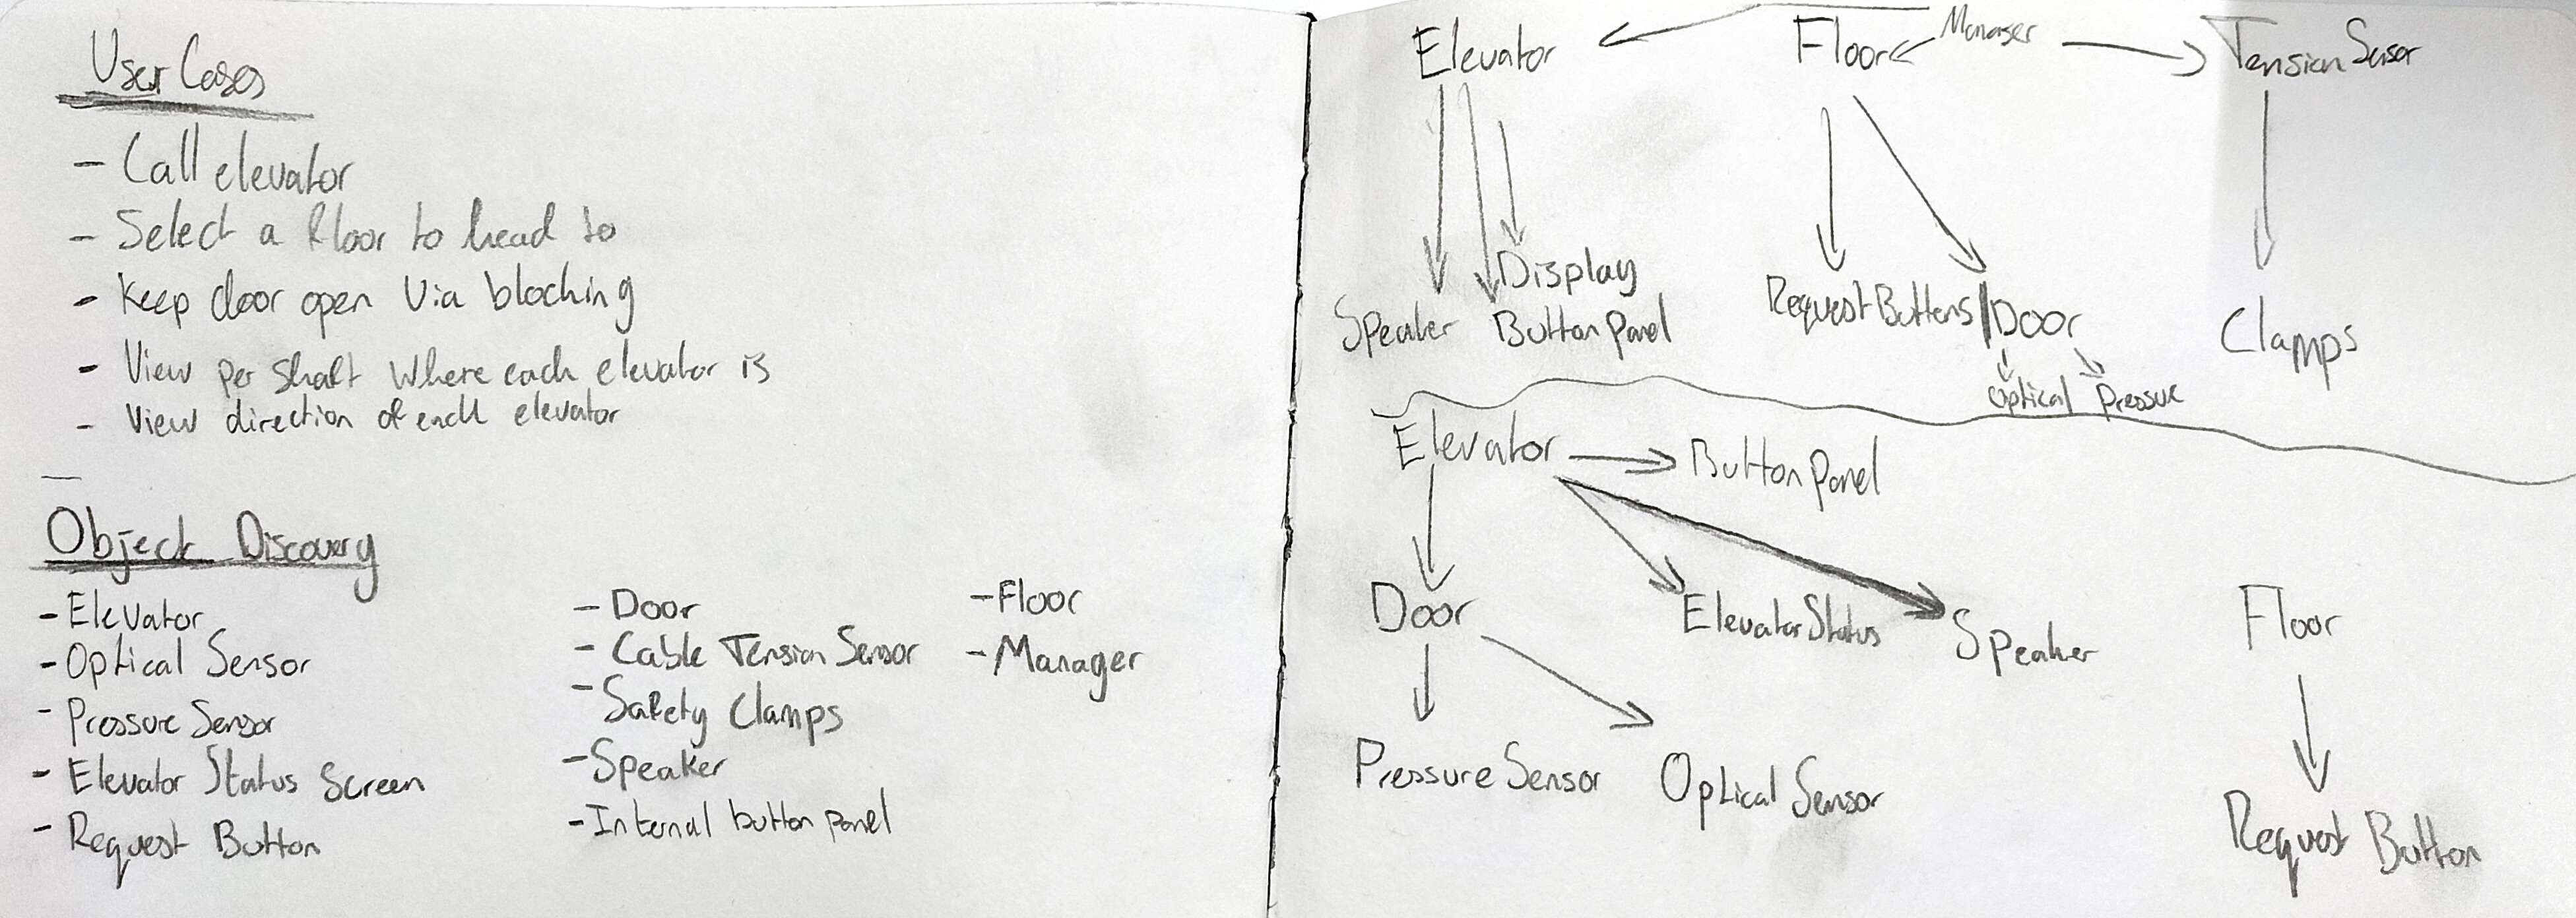 User Cases
- Call elevator
- Select a floor to head to
- Keep door open via blocking
- View per shaft where each elevator is
- View direction of each elevator
Object Discovery
- Elevator
- Optical Sensor
- Pressure Sensor
- Elevator Status Screen
- Request Button
- Door
- Cable Tension Sensor
- Safety Clamps
- Speaker
- Internal button panel
- Floor
- Manager
Elevator
Floor
Manager
Tension Sensor
Display
Speaker
Button Panel
Request Buttons
Door
Optical
Pressure
Clamps
Elevator
Button Panel
Door
Elevator Status
Speaker
Floor
Pressure Sensor
Optical Sensor
Request Button